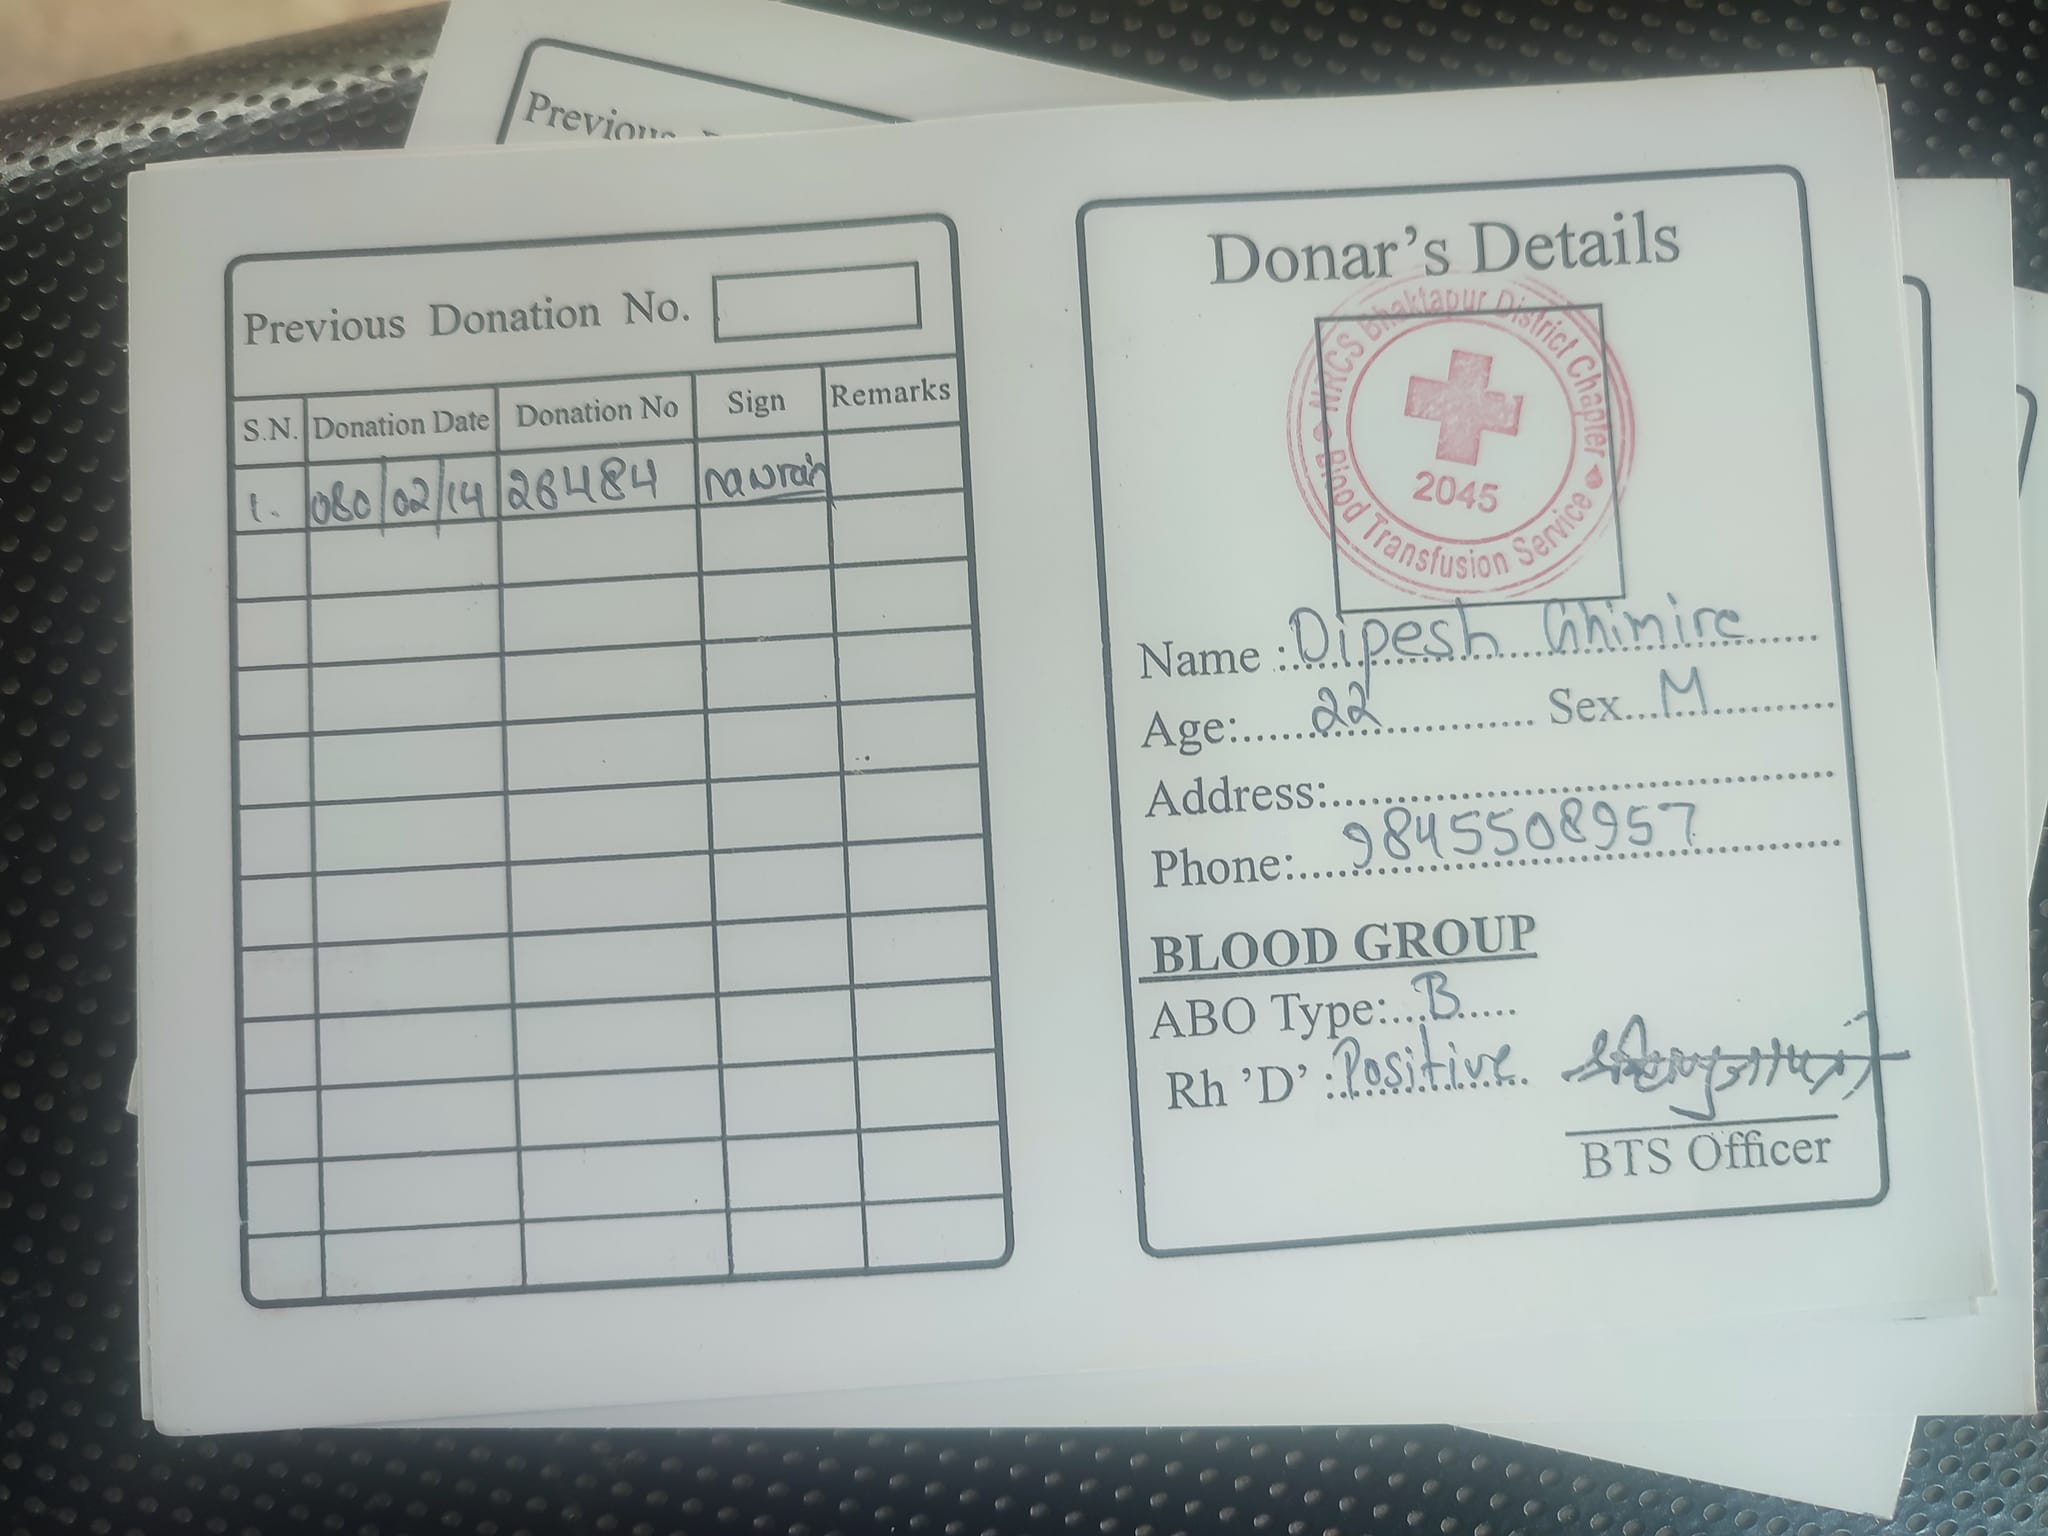 Previous
Previous Donation No.
S.N. Donation Date Donation No Sign Remarks
1. 080/02/14 26484
Donar's Details
NRCS Bhaktapur District Chapter
2045
Blood Transfusion Service
Name : Dipesh Ghimire
Age: 22 Sex M
Address:
Phone: 9845508957
BLOOD GROUP
ABO Type: B
Rh 'D' : Positive
BTS Officer